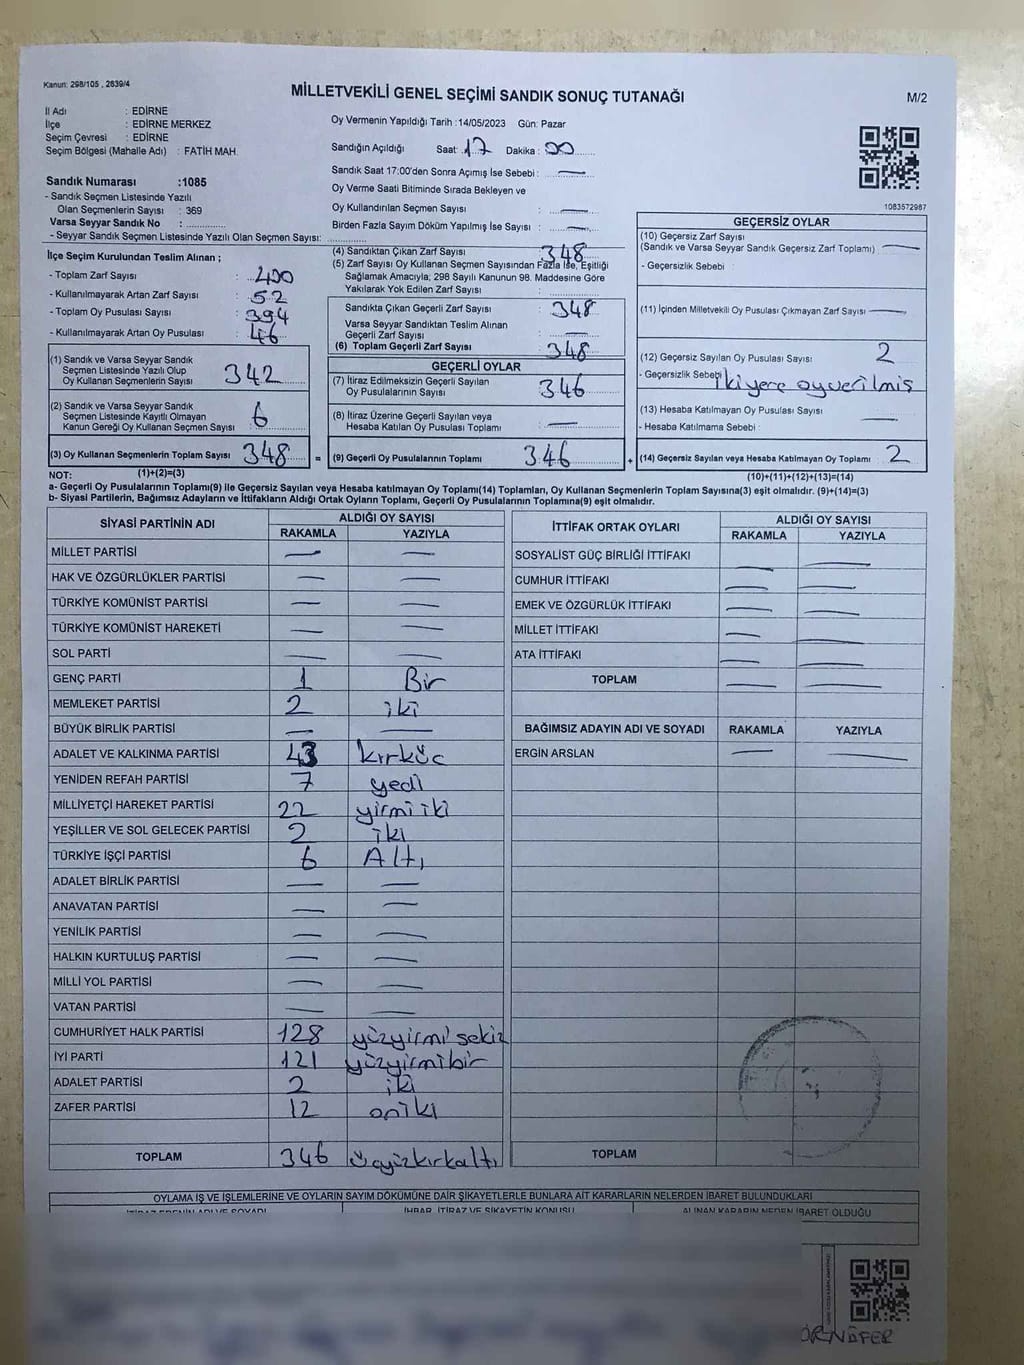 Kanun: 298/105 , 2839/4
MİLLETVEKİLİ GENEL SEÇİMİ SANDIK SONUÇ TUTANAĞI
M/2
İl Adı : EDİRNE
İlçe : EDİRNE MERKEZ
Seçim Çevresi : EDİRNE
Seçim Bölgesi (Mahalle Adı) : FATİH MAH.
Sandık Numarası :1085
- Sandık Seçmen Listesinde Yazılı
Olan Seçmenlerin Sayısı : 369
Varsa Seyyar Sandık No :
- Seyyar Sandık Seçmen Listesinde Yazılı Olan Seçmen Sayısı:
Oy Vermenin Yapıldığı Tarih :14/05/2023 Gün: Pazar
Sandığın Açıldığı Saat: 17 Dakika : 00
Sandık Saat 17:00'den Sonra Açımış İse Sebebi : —
Oy Verme Saati Bitiminde Sırada Bekleyen ve
Oy Kullandırılan Seçmen Sayısı : —
Birden Fazla Sayım Döküm Yapılmış İse Sayısı : —
1083572987
İlçe Seçim Kurulundan Teslim Alınan ;
- Toplam Zarf Sayısı : 400
- Kullanılmayarak Artan Zarf Sayısı : 52
- Toplam Oy Pusulası Sayısı : 394
- Kullanılmayarak Artan Oy Pusulası : 46
(1) Sandık ve Varsa Seyyar Sandık
Seçmen Listesinde Yazılı Olup
Oy Kullanan Seçmenlerin Sayısı 342
(2) Sandık ve Varsa Seyyar Sandık
Seçmen Listesinde Kayıtlı Olmayan
Kanun Gereği Oy Kullanan Seçmen Sayısı 6
(3) Oy Kullanan Seçmenlerin Toplam Sayısı 348 =
(4) Sandıktan Çıkan Zarf Sayısı : 348
(5) Zarf Sayısı Oy Kullanan Seçmen Sayısından Fazla İse, Eşitliği
Sağlamak Amacıyla; 298 Sayılı Kanunun 98. Maddesine Göre
Yakılarak Yok Edilen Zarf Sayısı :
Sandıkta Çıkan Geçerli Zarf Sayısı : 348
Varsa Seyyar Sandıktan Teslim Alınan
Geçerli Zarf Sayısı : —
(6) Toplam Geçerli Zarf Sayısı : 348
GEÇERLİ OYLAR
(7) İtiraz Edilmeksizin Geçerli Sayılan
Oy Pusulalarının Sayısı : 346
(8) İtiraz Üzerine Geçerli Sayılan veya
Hesaba Katılan Oy Pusulası Toplamı : —
(9) Geçerli Oy Pusulalarının Toplamı 346 +
GEÇERSİZ OYLAR
(10) Geçersiz Zarf Sayısı
(Sandık ve Varsa Seyyar Sandık Geçersiz Zarf Toplamı) —
- Geçersizlik Sebebi :
(11) İçinden Milletvekili Oy Pusulası Çıkmayan Zarf Sayısı —
(12) Geçersiz Sayılan Oy Pusulası Sayısı 2
- Geçersizlik Sebebi iki yere oy verilmiş
(13) Hesaba Katılmayan Oy Pusulası Sayısı —
- Hesaba Katılmama Sebebi :
(14) Geçersiz Sayılan veya Hesaba Katılmayan Oy Toplamı 2
NOT: (1)+(2)=(3)
(10)+(11)+(12)+(13)=(14)
a- Geçerli Oy Pusulalarının Toplamı(9) ile Geçersiz Sayılan veya Hesaba katılmayan Oy Toplamı(14) Toplamları, Oy Kullanan Seçmenlerin Toplam Sayısına(3) eşit olmalıdır. (9)+(14)=(3)
b- Siyasi Partilerin, Bağımsız Adayların ve İttifakların Aldığı Ortak Oyların Toplamı, Geçerli Oy Pusulalarının Toplamına(9) eşit olmalıdır.
SİYASİ PARTİNİN ADI ALDIĞI OY SAYISI
RAKAMLA YAZIYLA
MİLLET PARTİSİ — —
HAK VE ÖZGÜRLÜKLER PARTİSİ — —
TÜRKİYE KOMÜNİST PARTİSİ — —
TÜRKİYE KOMÜNİST HAREKETİ — —
SOL PARTİ — —
GENÇ PARTİ 1 Bir
MEMLEKET PARTİSİ 2 iki
BÜYÜK BİRLİK PARTİSİ — —
ADALET VE KALKINMA PARTİSİ 43 kırküç
YENİDEN REFAH PARTİSİ 7 yedi
MİLLİYETÇİ HAREKET PARTİSİ 22 yirmi iki
YEŞİLLER VE SOL GELECEK PARTİSİ 2 iki
TÜRKİYE İŞÇİ PARTİSİ 6 Altı
ADALET BİRLİK PARTİSİ — —
ANAVATAN PARTİSİ — —
YENİLİK PARTİSİ — —
HALKIN KURTULUŞ PARTİSİ — —
MİLLİ YOL PARTİSİ — —
VATAN PARTİSİ — —
CUMHURİYET HALK PARTİSİ 128 yüzyirmi sekiz
İYİ PARTİ 121 yüzyirmibir
ADALET PARTİSİ 2 iki
ZAFER PARTİSİ 12 oniki
TOPLAM 346 üçyüzkırkaltı
İTTİFAK ORTAK OYLARI ALDIĞI OY SAYISI
RAKAMLA YAZIYLA
SOSYALİST GÜÇ BİRLİĞİ İTTİFAKI — —
CUMHUR İTTİFAKI — —
EMEK VE ÖZGÜRLÜK İTTİFAKI — —
MİLLET İTTİFAKI — —
ATA İTTİFAKI — —
TOPLAM — —
BAĞIMSIZ ADAYIN ADI VE SOYADI RAKAMLA YAZIYLA
ERGİN ARSLAN — —
TOPLAM
OYLAMA İŞ VE İŞLEMLERİNE VE OYLARIN SAYIM DÖKÜMÜNE DAİR ŞİKAYETLERLE BUNLARA AİT KARARLARIN NELERDEN İBARET BULUNDUKLARI
İTİRAZ EDENİN ADI VE SOYADI İHBAR, İTİRAZ VE ŞİKAYETİN KONUSU ALINAN KARARIN NEDEN İBARET OLDUĞU